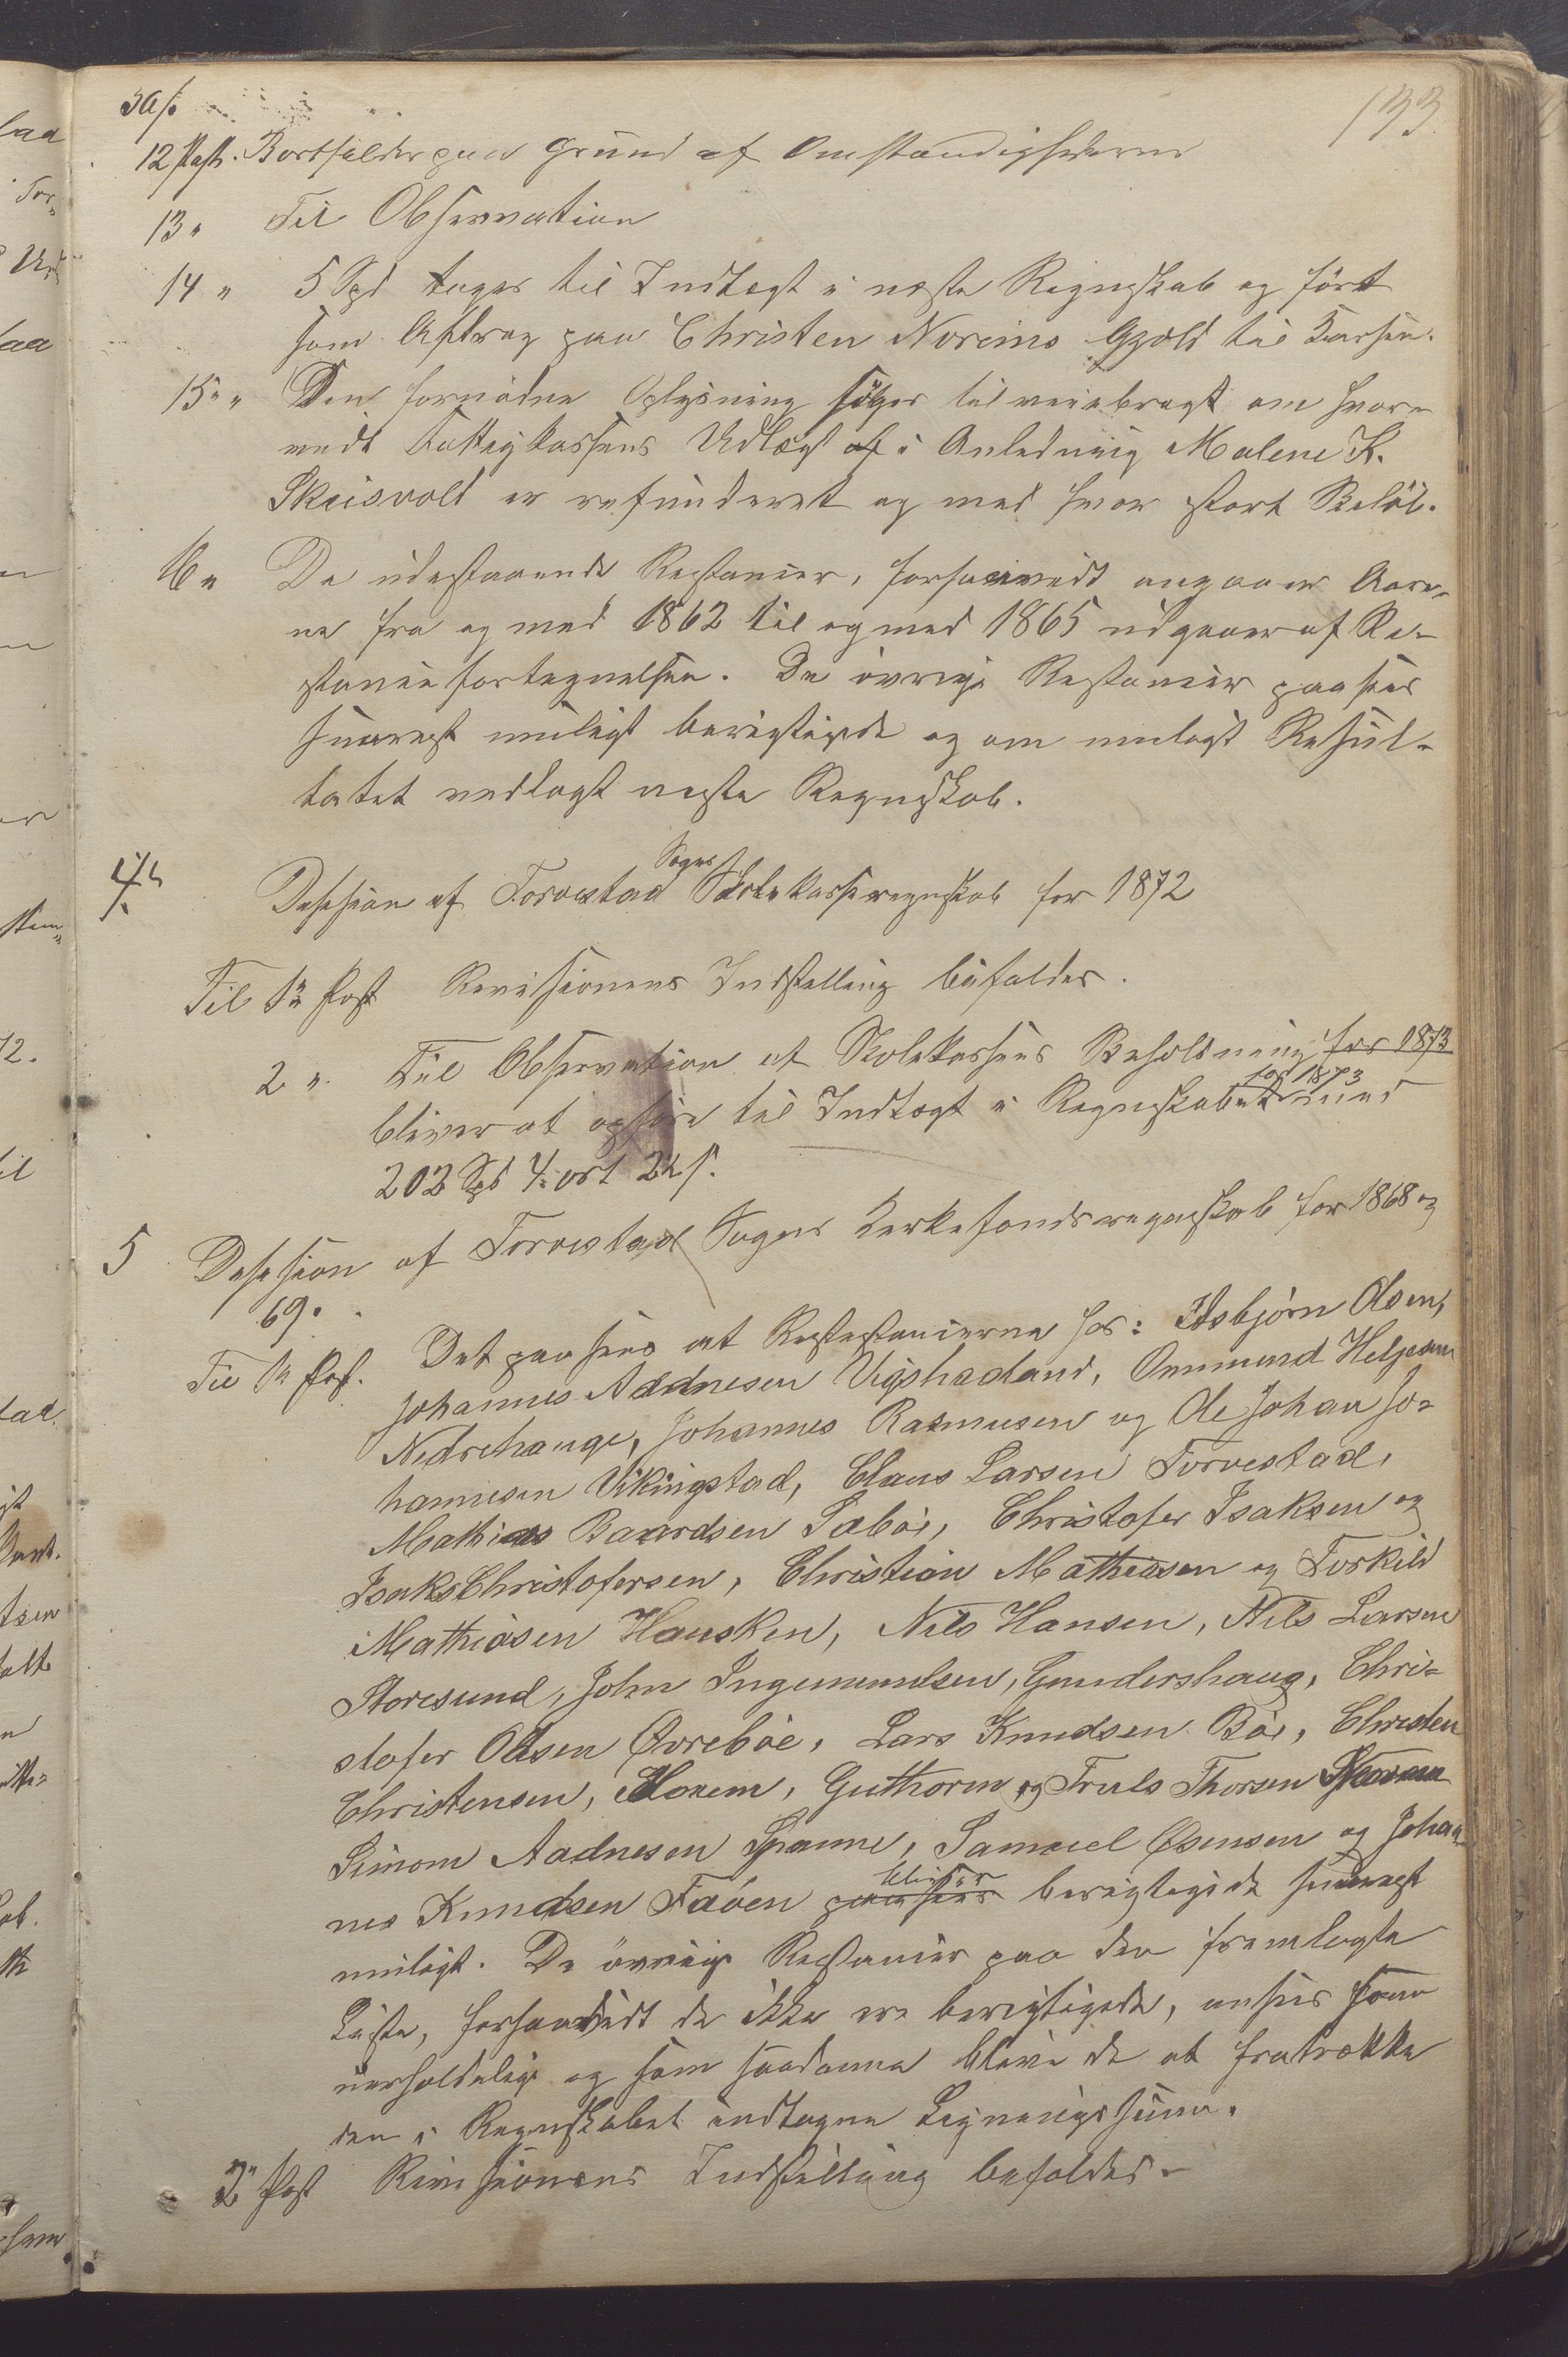 133
12 Post. Bortfalder paa Grund af Omstændighederne
13 " Til Observation
14 " 5 Spd tages til Indtægt i næste Regnskab og ført
som Afdrag paa Christen Noreims Gjæld til Kassen.
15 " " Den fornødne Oplysning søges tilveiebragt om hvor-
vidt Fattigkassens Udlæg i Anledning Malene K.
Skeisvold er refunderet og med hvor stort Beløb.
16 " De udestaaende Restancer, forsaavidt angaaer Aare-
ne fra og med 1862 til og med 1865 udgaaer af Re-
stancefortegnelsen. De øvrige Restancer paasees
snarest muligt berigtigede og om muligt Resul-
tatet vedlagt næste Regnskab.
4 Desision af Torvestad Sogns Skolekasseregnskab for 1872
Til 1ste Post Revisionens Indstilling bifaldes.
2 " Til Observation at Skolekassens Beholdning for 1873
bliver at opføre til Indtægt i Regnskabet for 1873 med
202 Spd 4 ort 22 s.
5 Desision af Torvestad Sogns Kirkefondsregnskab for 1868 og
69.
Til 1ste Post. Det paasees at Restancerne hos: Asbjørn Olsen,
Johannes Adnesen Vigshadland, Ommund Helgesen
Nedrehauge, Johannes Rasmusen og Ole Johan Jo-
hannesen Vikingstad, Claus Larsen Torvestad,
Mathias Baardsen Sæbøe, Christofer Isaksen og
Isak Christofersen, Christian Mathiasen og Torkild
Mathiasen Hausken, Nils Hansen, Nils Larsen
Storesund, John Ingemundsen, Gundershaug, Chri-
stofer Olsen Øvrebøe, Lars Knudsen Bøe, Christen
Christensen, Norem, Guthorm og Truls Thorsen
Simon Aadnesen Spanne, Samuel Osensen og Johan-
nes Knudsen Fæøen paasees bliver berigtigede snarest
muligt. De øvrige Restancer paa den fremlagte
Liste, forsaavidt de ikke ere berigtigede, ansees som
uerholdelige og som saadanne blive de at fratrække
den i Regnskabet indtagne Ligningssum.
2 " Post Revisionens Indstilling bifaldes.